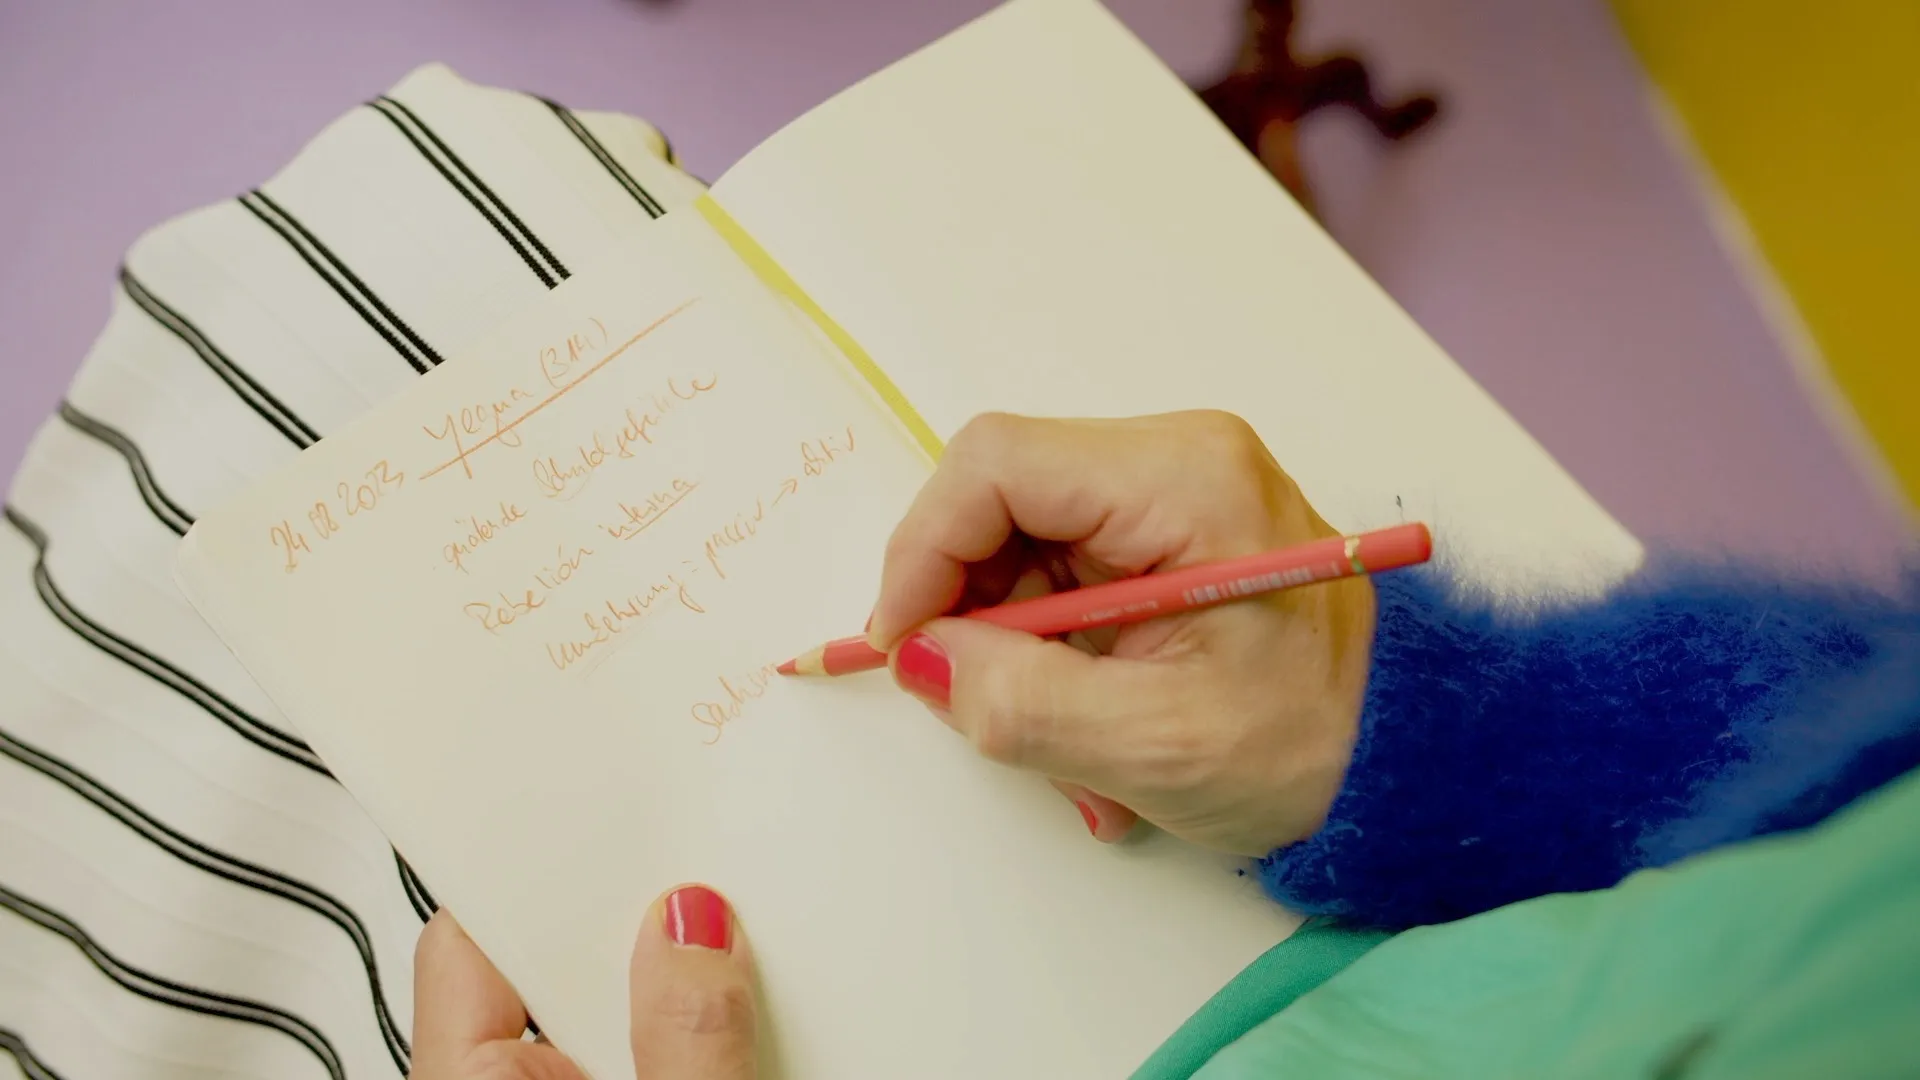 24 08 2023 Yegua (314)
quälende Schuldgefühle
Rebelión interna
Umkehrung: passiv → aktiv
Sadism